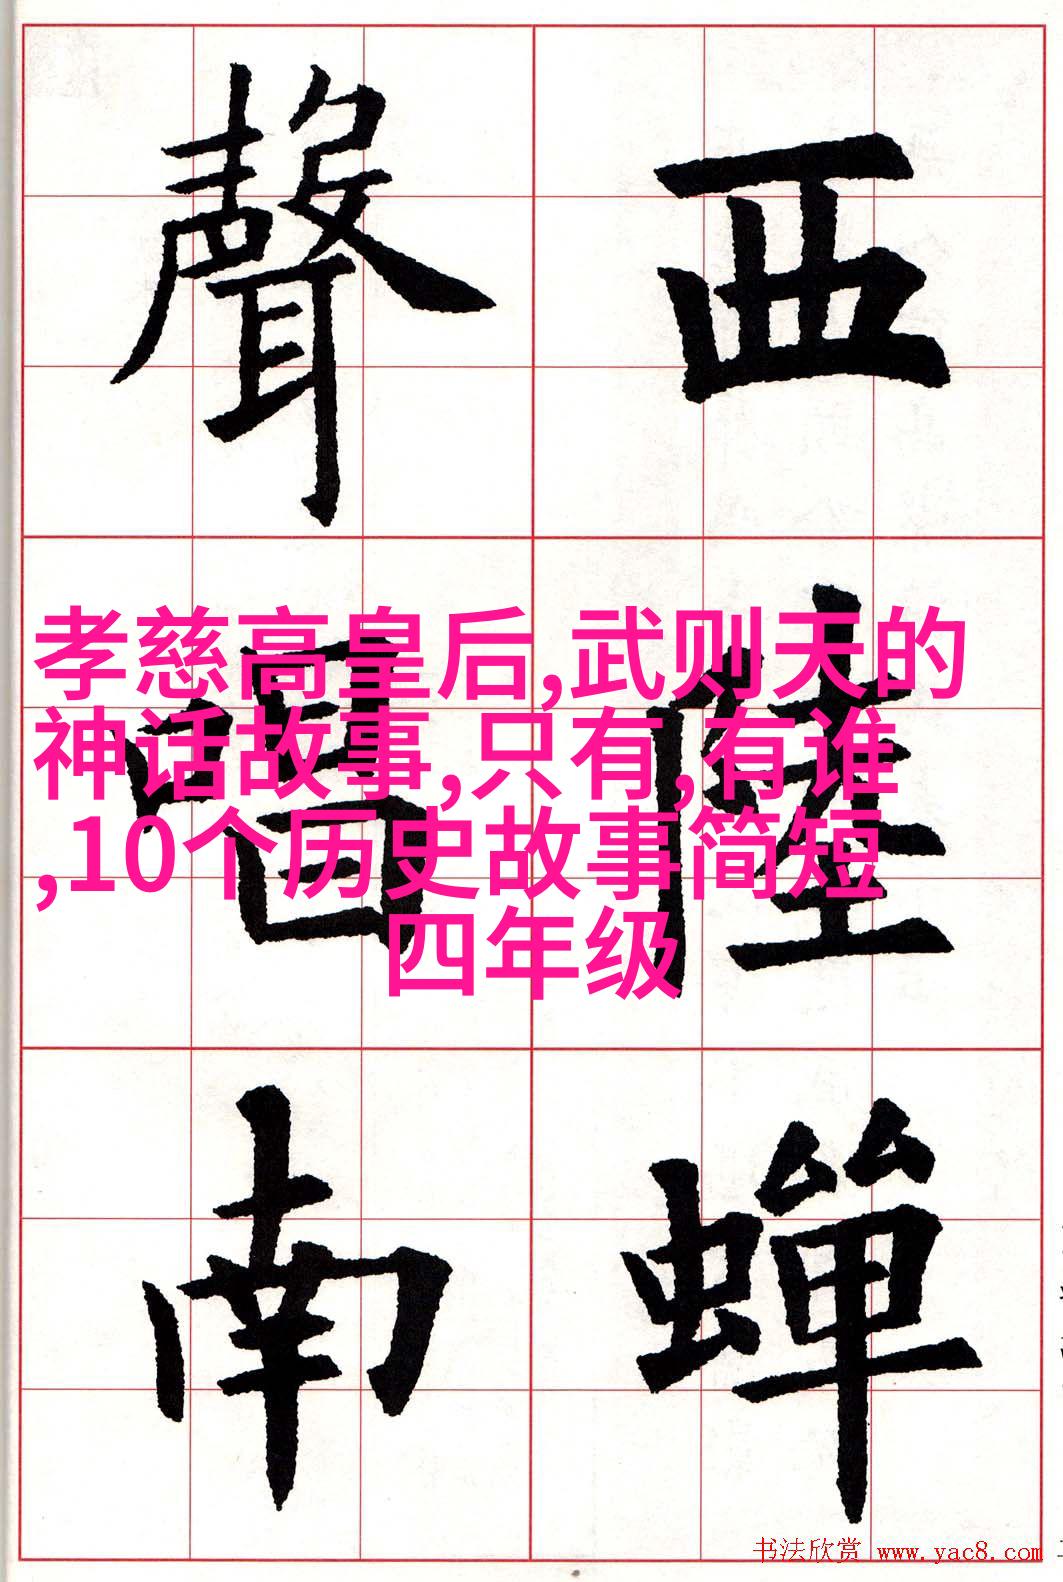 西陸蟬
聲唱南
孝慈高皇后,武则天的
神话故事,只有,有谁
,10个历史故事简短
四年级
书法欣赏 www.yac8.com